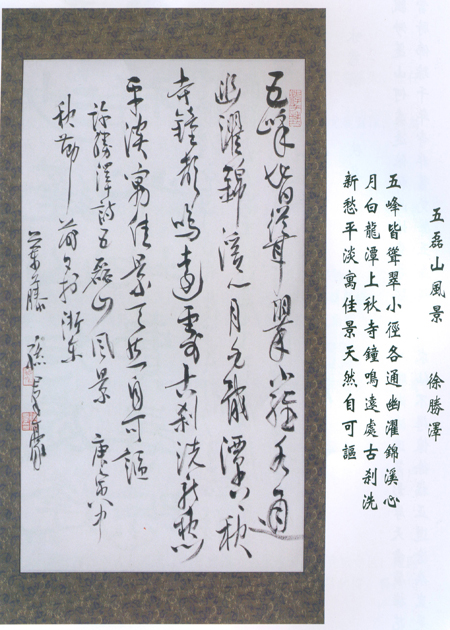 五磊山風景 徐勝澤
五峰皆聳翠小徑各通幽濯錦溪心
月白龍潭上秋寺鐘鳴遠處古刹洗
新愁平淡寓佳景天然自可謳
五峰皆聳翠小徑各通
幽濯錦溪心月白龍潭上秋
寺鐘鳴遠處古刹洗新愁
平淡寓佳景天然自可謳
勝澤詩五磊山風景 庚
秋節 於浙東